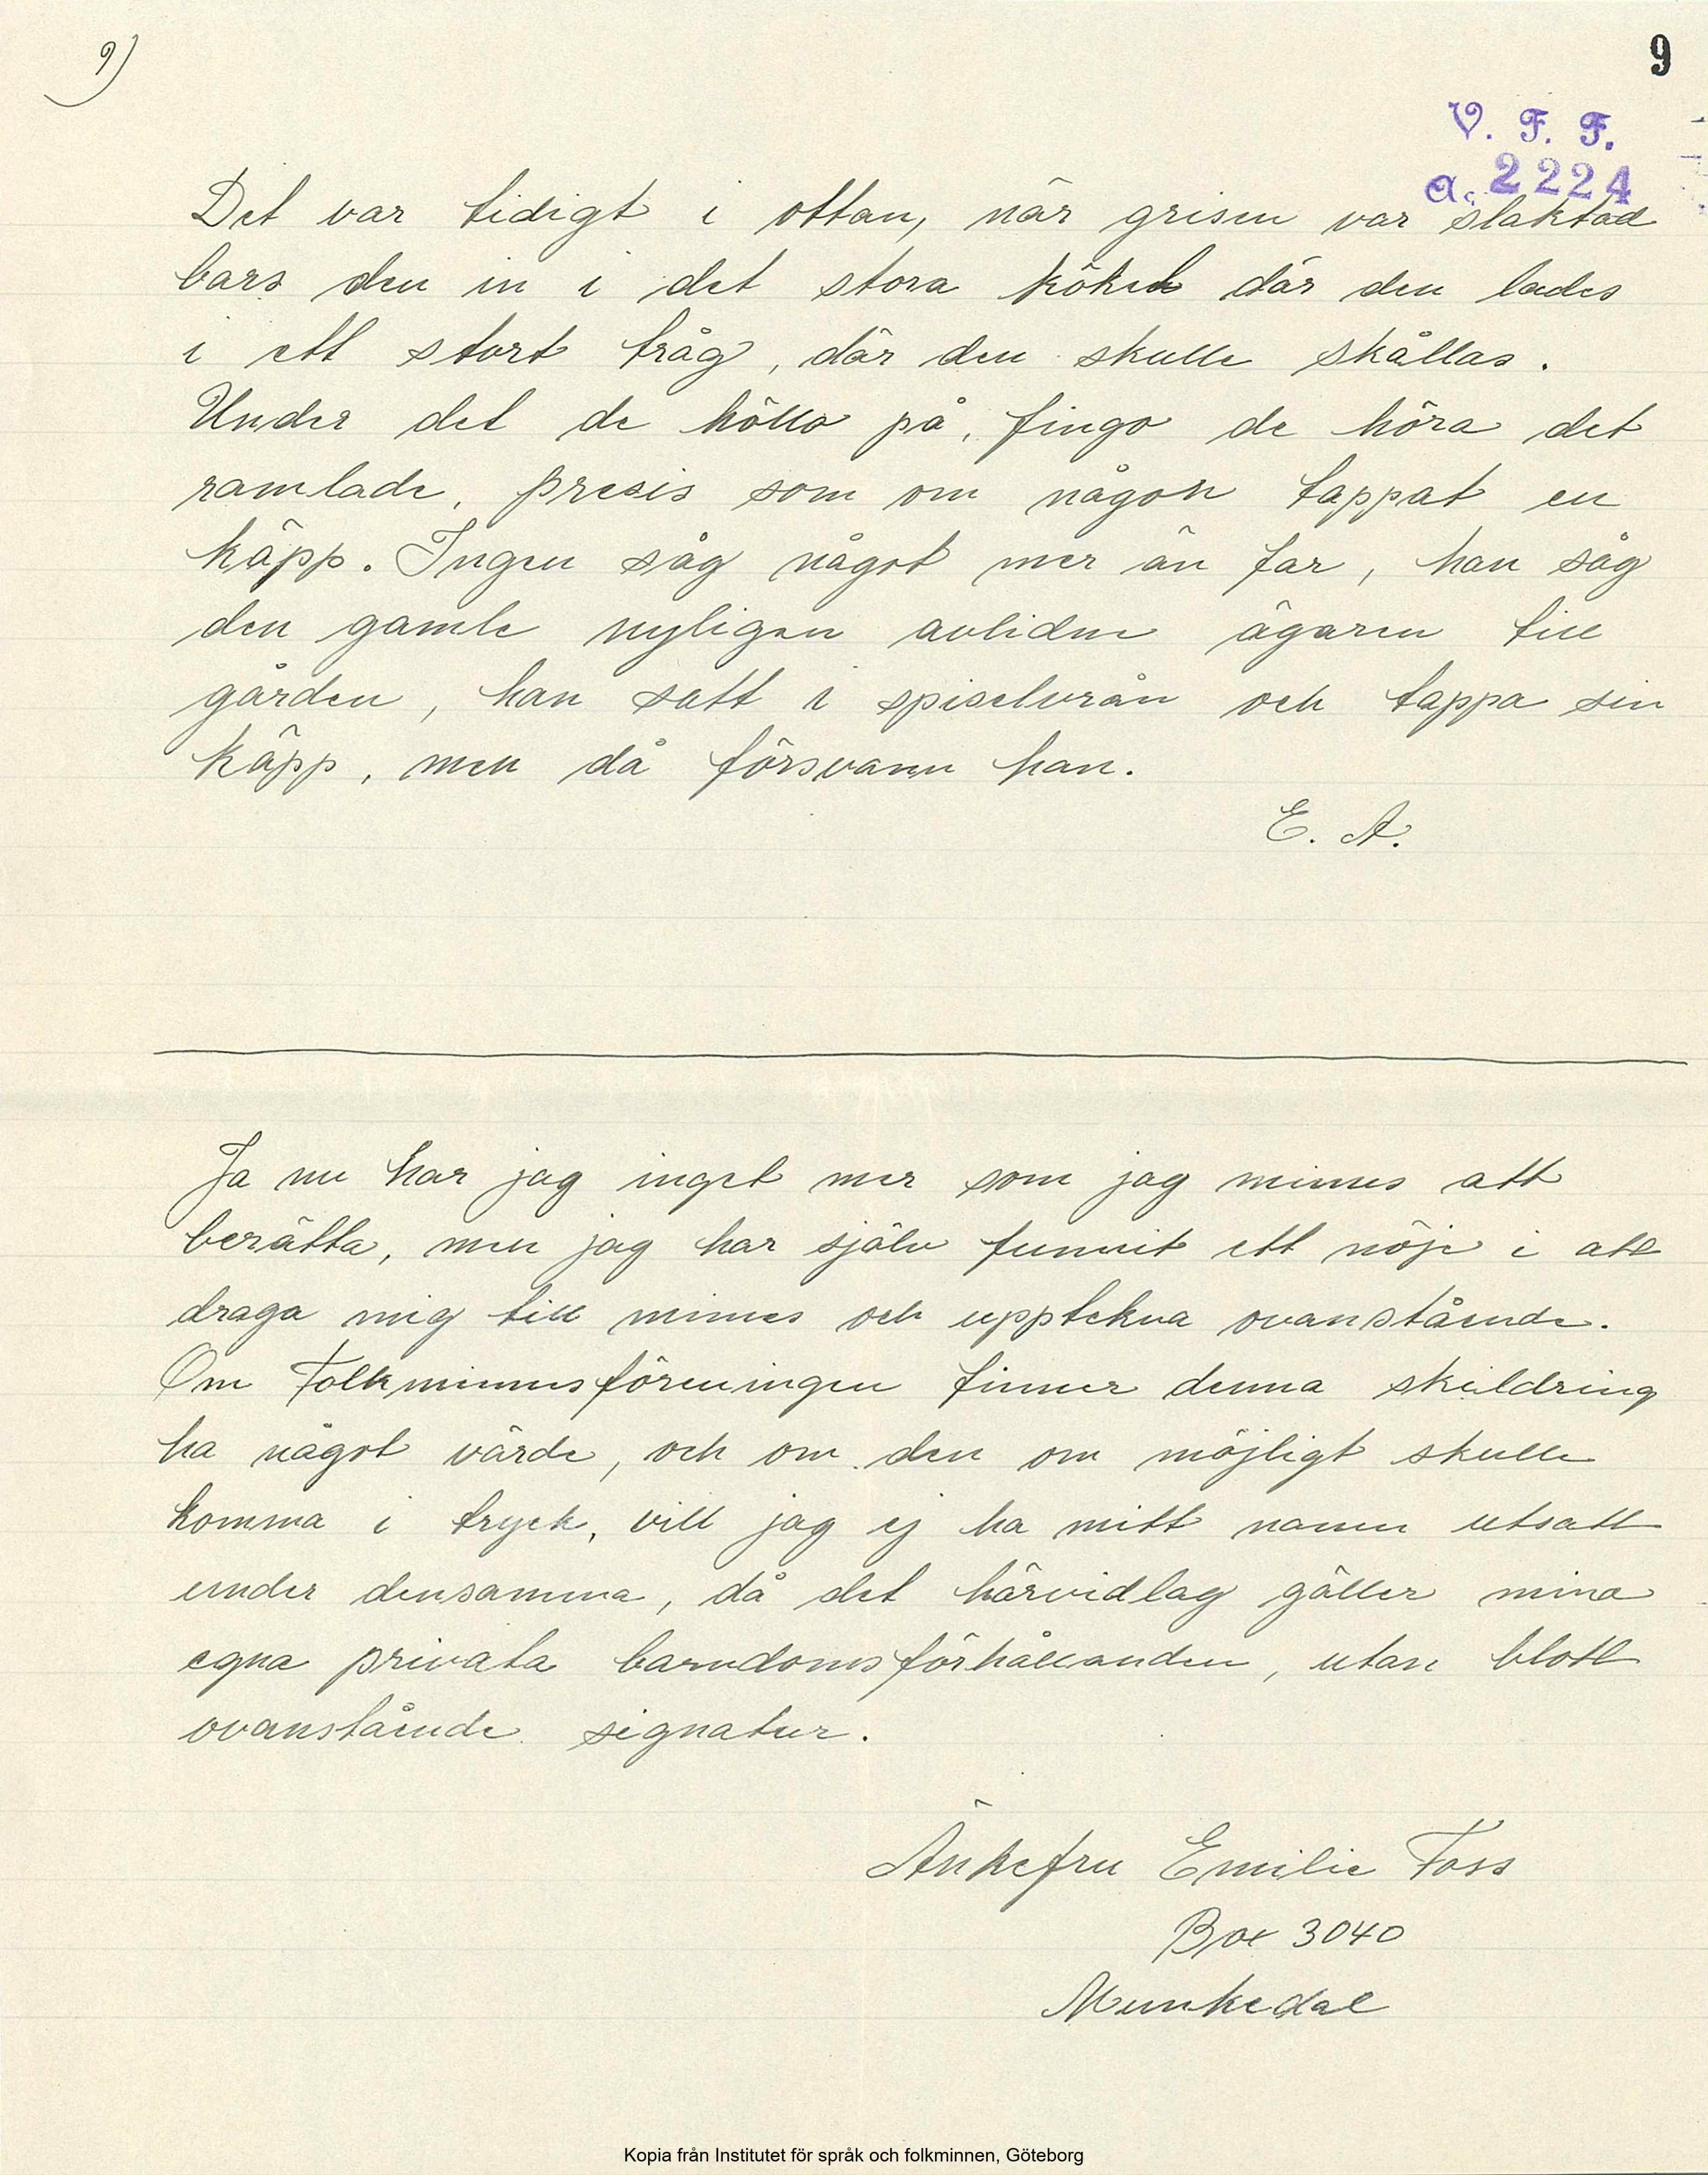 9)
9
V. F. F.
a. 2224
Det var tidigt i ottan, när grisen var slaktad
bars den in i det stora köket där den lades
i ett stort tråg, där den skulle skållas.
Under det de höllo på, fingo de höra det
ramlade, presis som om någon tappat en
käpp. Ingen såg något mer än far, han såg
den gamle nyligen avlidne ägaren till
gården, han satt i spiselvrån och tappa sin
käpp, men då försvann han.
E. A.
Ja nu har jag inget mer som jag minnes att
berätta, men jag har själv funnit ett nöje i att
draga mig till minnes och upptekna ovanstående.
Om Folkminnesföreningen finner denna skildring
ha något värde, och om den om möjligt skulle
komma i tryck, vill jag ej ha mitt namn utsatt
under densamma, då det härvidlag gäller mina
egna privata barndomsförhållanden, utan blott
ovanstående signatur.
Änkefru Emilie Foss
Box 3040
Munkedal
Kopia från Institutet för språk och folkminnen, Göteborg